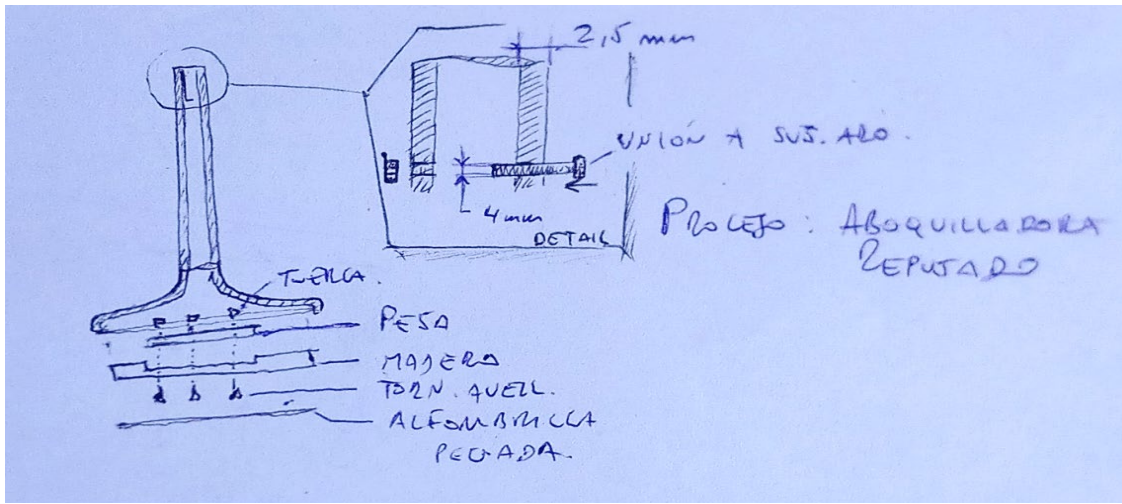 2,5 mm
UNIÓN A SUJ. ARO.
4mm
DETAIL
PROCESO: ABOQUILLADORA
REPUJADO
TUERCA.
PESA
MADERO
TORN. AVELL.
ALFOMBRILLA
PEGADA.